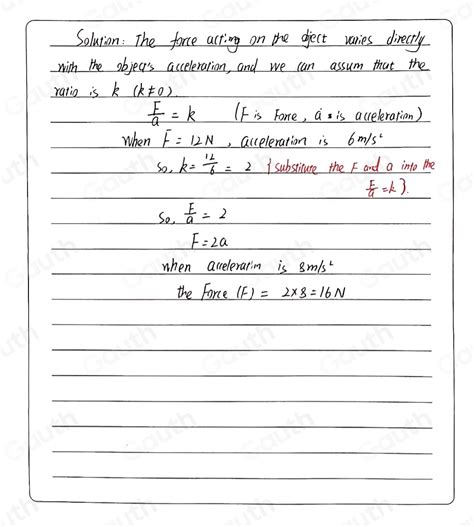 Solution: The force acting on the oject varies directly
with the object's acceleration, and we can assum that the
ratio is k (k≠0).
F/a = k (F is Force, a is acceleration)
When F = 12N, acceleration is 6m/s²
So, k = 12/6 = 2 {substitute the F and a into the
F/a = k}.
So, F/a = 2
F = 2a
when acceleration is 8m/s²
the Force (F) = 2×8 = 16N
Gauth